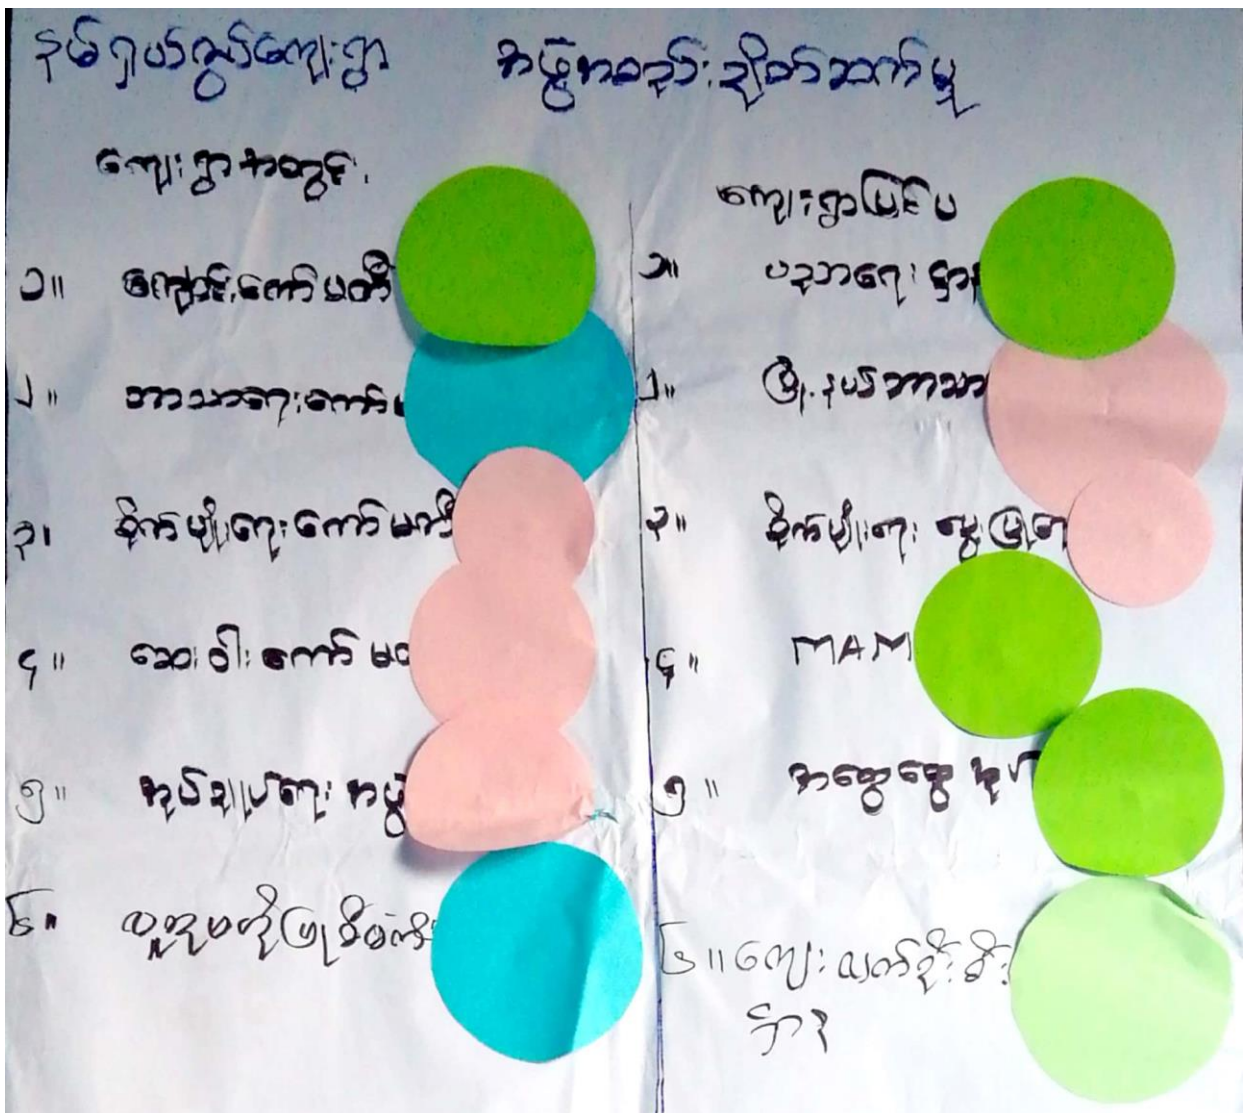 နမ်ရှယ်ကျွတ်ကျေးရွာ အဖွဲ့အစည်းချိတ်ဆက်မှု
ကျေးရွာအတွင်း
၁။ ကျောင်းကော်မတီ
၂။ ဘာသာရေးကော်မ
၃။ စိုက်ပျိုးရေးကော်မတီ
၄။ ဆေးဝါးကော်မတ
၅။ အုပ်ချုပ်ရေးအဖွဲ့
၆။
ကျေးရွာပြင်ပ
၁။ ပညာရေးဌာန
၂။ မြို့နယ်ဘာသာ
၃။ စိုက်ပျိုးရေး မွေးမြူရေ
၄။ MAM
၅။ အထွေထွေ အုပ်
၆။ ကျေးလက်ဦးစီး
ဌာန